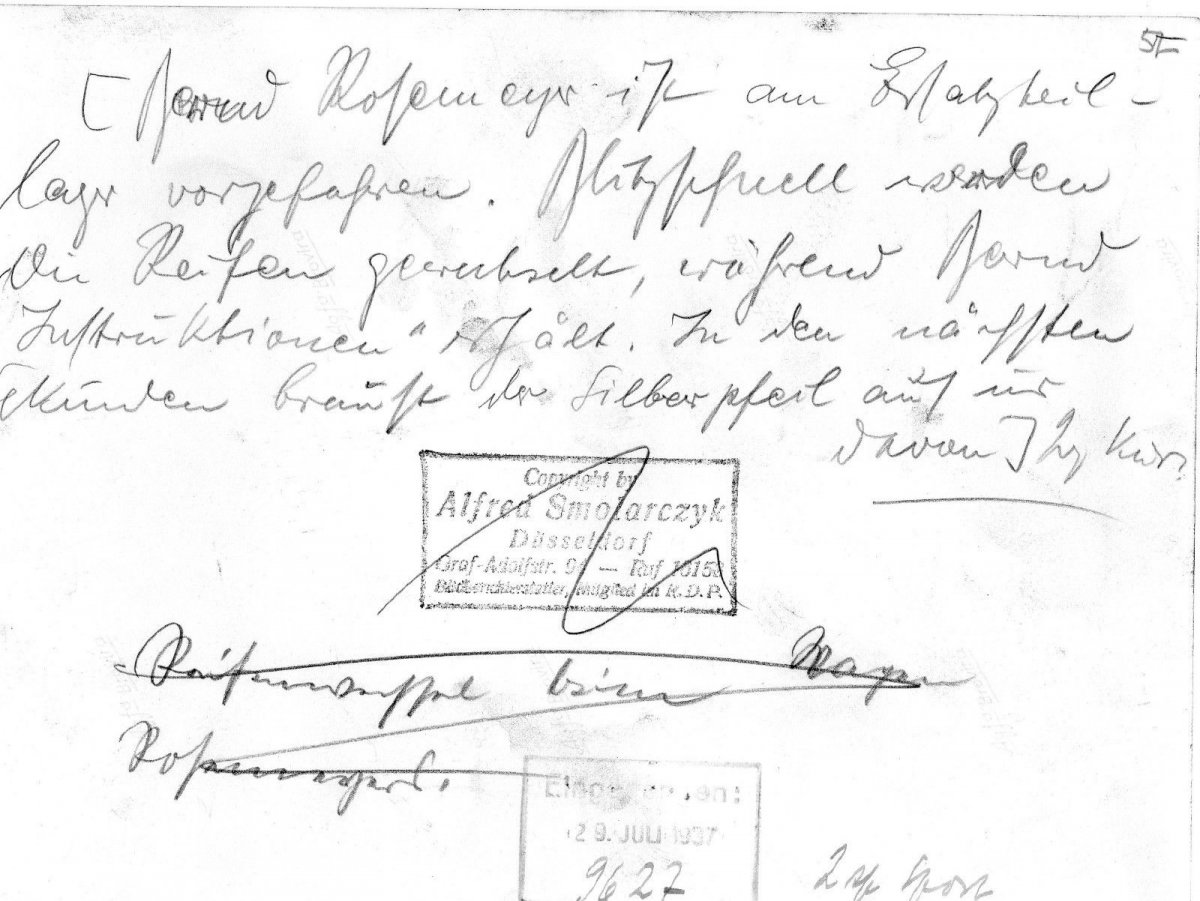 [Bernd Rosemeyer ist am Ersatzteil-
lager vorgefahren. Blitzschnell werden
die Reifen gewechselt, während Bernd
Instruktionen" erhält. In den nächsten
Sekunden braust der Silberpfeil auf
davon]
Copyright by
Alfred Smolarczyk
Düsseldorf
Graf-Adolfstr. — Ruf
Bildberichterstatter, Mitglied im R.D.P.
Reifenwechsel beim Wagen
Rosemeyers.
Eingegangen:
29. JULI 1937
9627
2 Sport